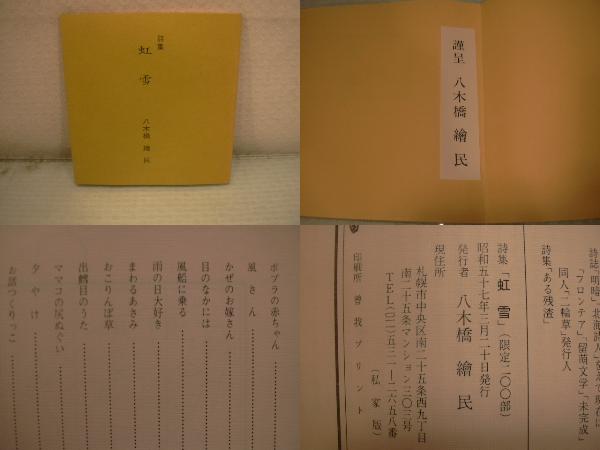 詩集
虹雪
八木橋 繪民
謹呈 八木橋 繪民
ポプラの赤ちゃん
風さん
かぜのお嫁さん
目のなかには
風船に乗る
雨の日大好き
まわるあさみ
おこりんぼ草
出鱈目のうた
ママコの尻ぬぐい
夕やけ
お話つくりっこ
詩誌「明暗」「北海詩人」
「フロンテア」「留萌文学」「未完成」
同人「二輪草」発行人
詩集「ある残渣」
詩集「虹雪」(限定二〇〇部)
昭和五十七年三月二十日発行
発行者 八木橋 繪民
現住所
札幌市中央区南二十五条西九丁目
南二十五条マンション三〇三号
(私家版)
印刷所 曾我プリント